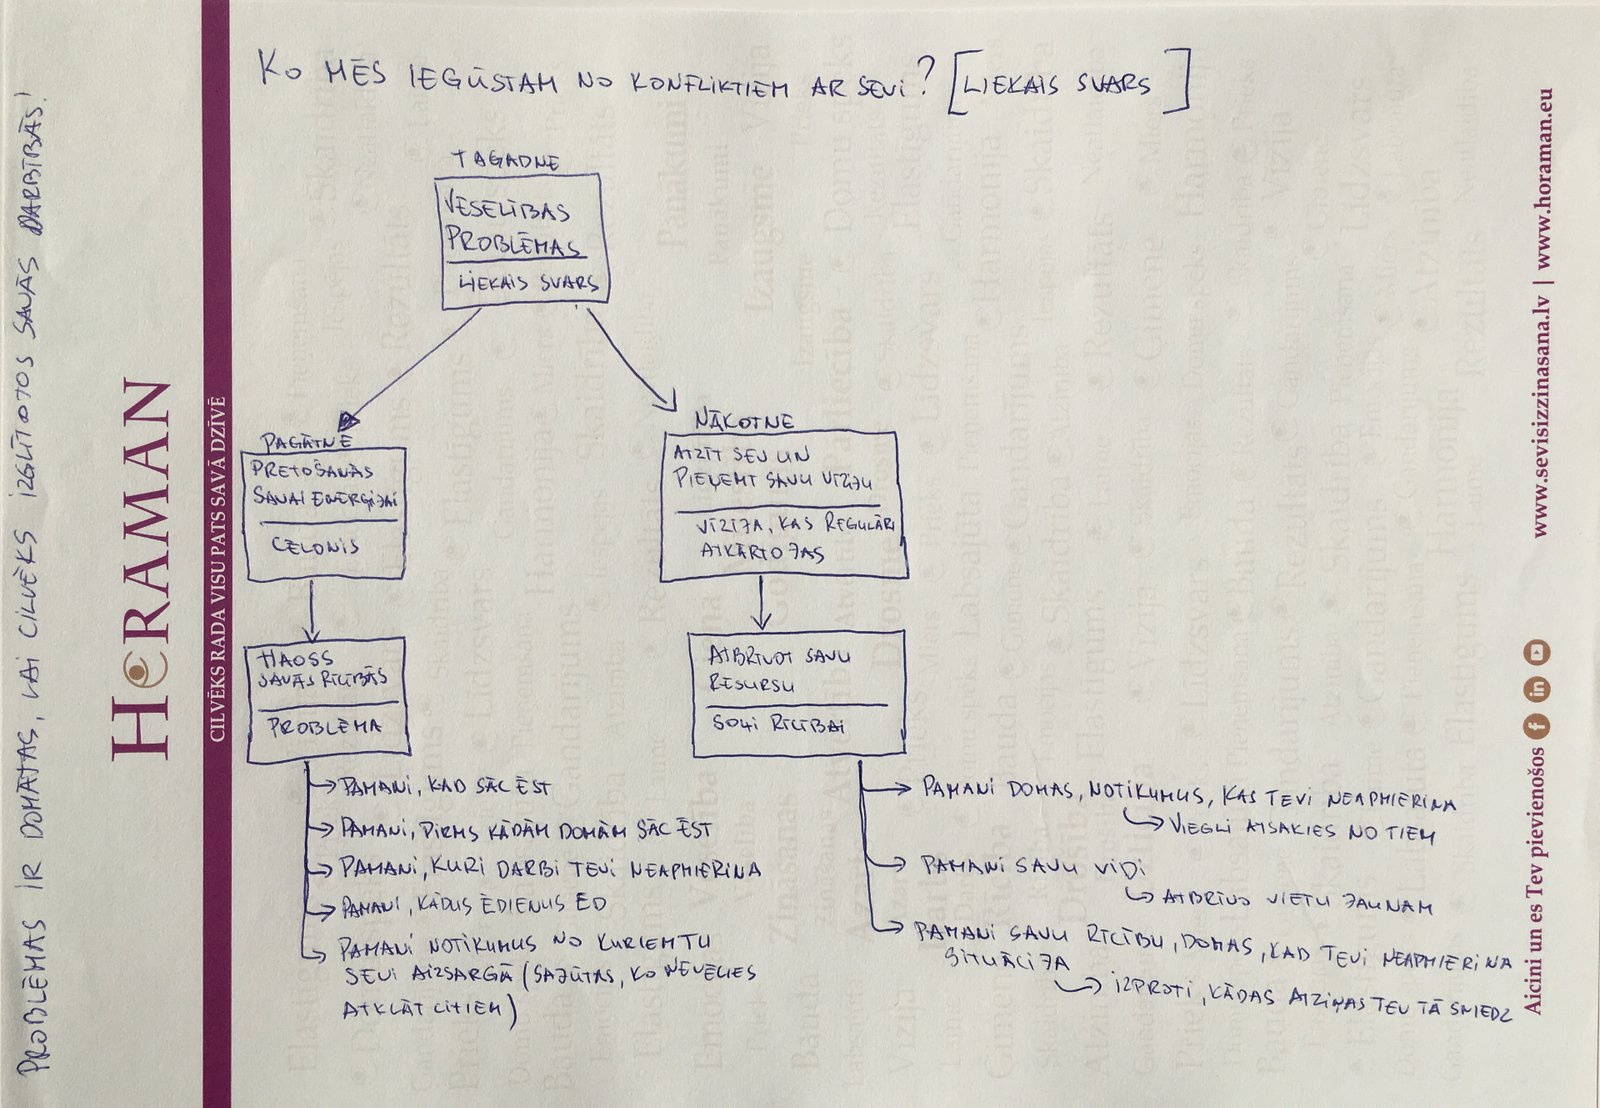 KO MĒS IEGŪSTAM NO KONFLIKTIEM AR SEVI? [LIEKAIS SVARS]
TAGADNE
VESELĪBAS
PROBLĒMAS
LIEKAIS SVARS
PAGĀTNE
PRETOŠANĀS
SAVAI ENERĢIJAI
CĒLONIS
HAOSS
SAVĀS RĪCĪBĀS
PROBLĒMA
PAMANI, KAD SĀC ĒST
PAMANI, PIRMS KĀDĀM DOMĀM SĀC ĒST
PAMANI, KURI DARBI TEVI NEAPMIERINA
PAMANI, KĀDUS ĒDIENUS ĒD
PAMANI NOTIKUMUS NO KURIEM TU
SEVI AIZSARGĀ (SAJŪTAS, KO NEVĒLIES
ATKLĀT CITIEM)
NĀKOTNE
ATZĪT SEV UN
PIEŅEMT SAVU VĪZIJU
VĪZIJA, KAS REGULĀRI
ATKĀRTOJAS
ATBRĪVOT SAVU
RESURSU
SOĻI RĪCĪBAI
PAMANI DOMAS, NOTIKUMUS, KAS TEVI NEAPMIERINA
VIEGLI ATSAKIES NO TIEM
PAMANI SAVU VIDI
ATBRĪVO VIETU JAUNAM
PAMANI SAVU RĪCĪBU, DOMAS, KAD TEVI NEAPMIERINA
SITUĀCIJA
IZPROTI, KĀDAS ATZIŅAS TEV TĀ SNIEDZ
PROBLĒMAS IR DOMĀTAS, LAI CILVĒKS IZGLĪTOTOS SAVĀS DARBĪBĀS!
HORAMAN
CILVĒKS RADA VISU PATS SAVĀ DZĪVĒ
Aicini un es Tev pievienošos
www.sevisizzinasana.lv | www.horaman.eu